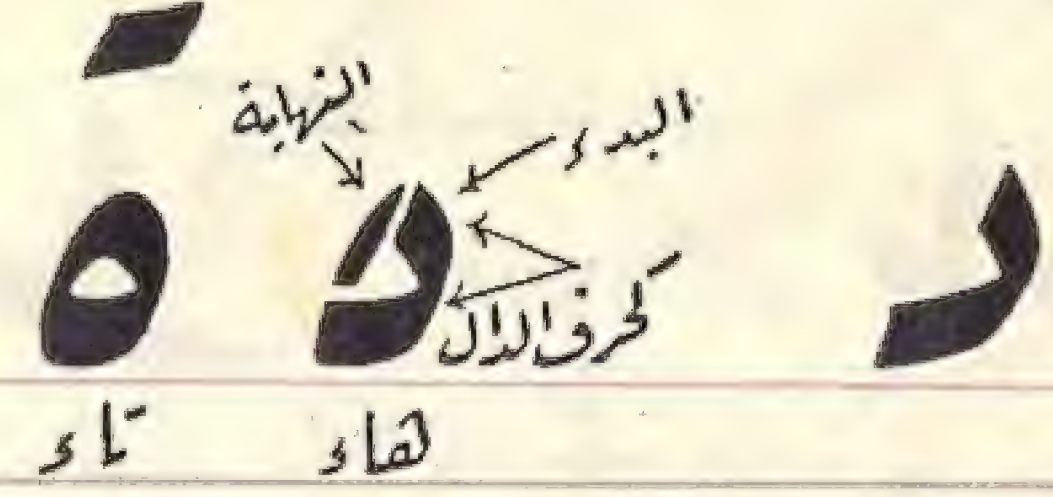 النهاية
البدء
د ه ة
كحرف الدال
هاء تاء